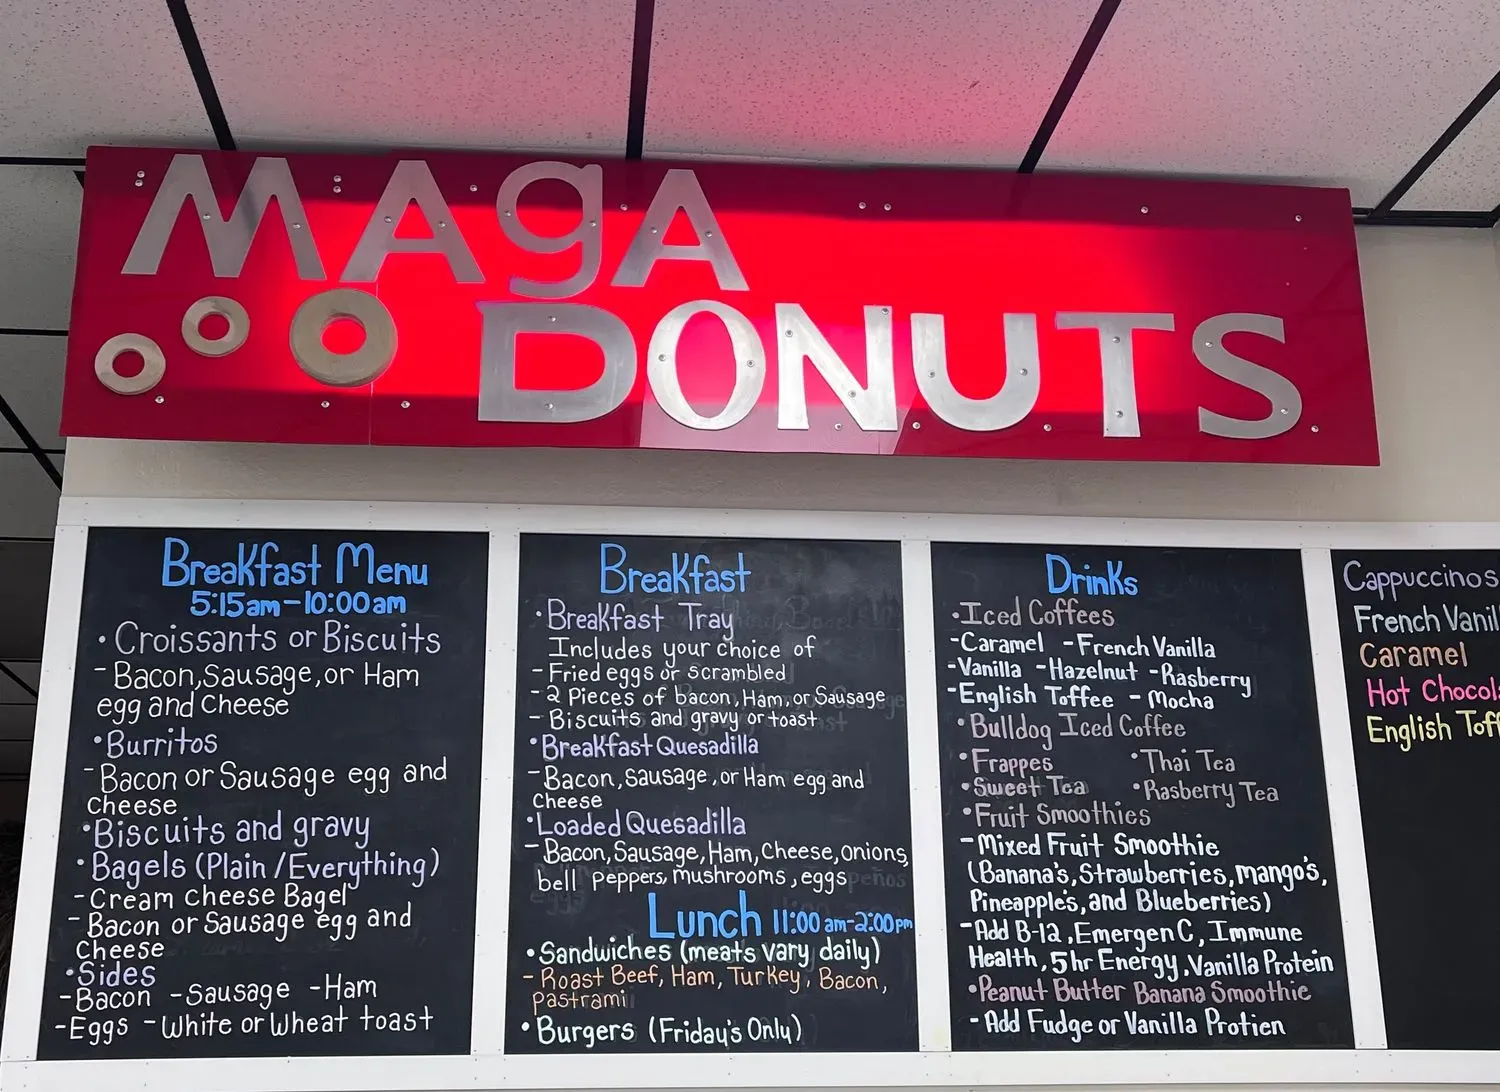 MAgA
DONUTS
Breakfast Menu
5:15am-10:00am
• Croissants or Biscuits
- Bacon, Sausage, or Ham
egg and Cheese
• Burritos
- Bacon or Sausage egg and
Cheese
• Biscuits and gravy
• Bagels (Plain / Everything)
- Cream Cheese Bagel
- Bacon or Sausage egg and
Cheese
• Sides
- Bacon - Sausage - Ham
- Eggs - White or Wheat toast
Breakfast
• Breakfast Tray
Includes your choice of
- Fried eggs or scrambled
- 2 Pieces of bacon, Ham, or Sausage
- Biscuits and gravy or toast
• Breakfast Quesadilla
- Bacon, Sausage, or Ham egg and
Cheese
• Loaded Quesadilla
- Bacon, Sausage, Ham, Cheese, onions,
bell peppers, mushrooms, eggs
Lunch 11:00 am-2:00pm
• Sandwiches (meats vary daily)
- Roast Beef, Ham, Turkey, Bacon,
Pastrami
• Burgers (Friday's Only)
Drinks
• Iced Coffees
- Caramel - French Vanilla
- Vanilla - Hazelnut - Rasberry
- English Toffee - Mocha
• Bulldog Iced Coffee
• Frappes • Thai Tea
• Sweet Tea • Rasberry Tea
• Fruit Smoothies
- Mixed Fruit Smoothie
(Banana's, Strawberries, mango's,
Pineapples, and Blueberries)
- Add B-12, Emergen C, Immune
Health, 5 hr Energy, Vanilla Protein
• Peanut Butter Banana Smoothie
- Add Fudge or Vanilla Protien
Cappuccinos
French Vanil
Caramel
Hot Chocol
English Toff